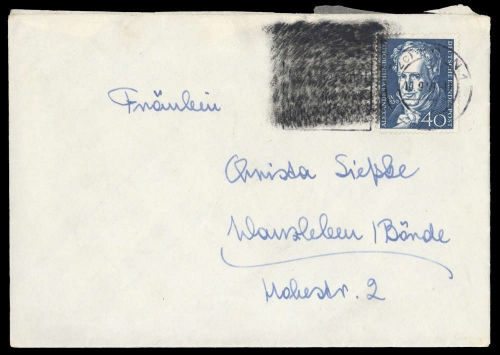 ALEXANDER V. HUMBOLDT
DEUTSCHE BUNDESPOST
40
Fräulein
Christa Siepke
Wanzleben / Börde
Hohestr. 2